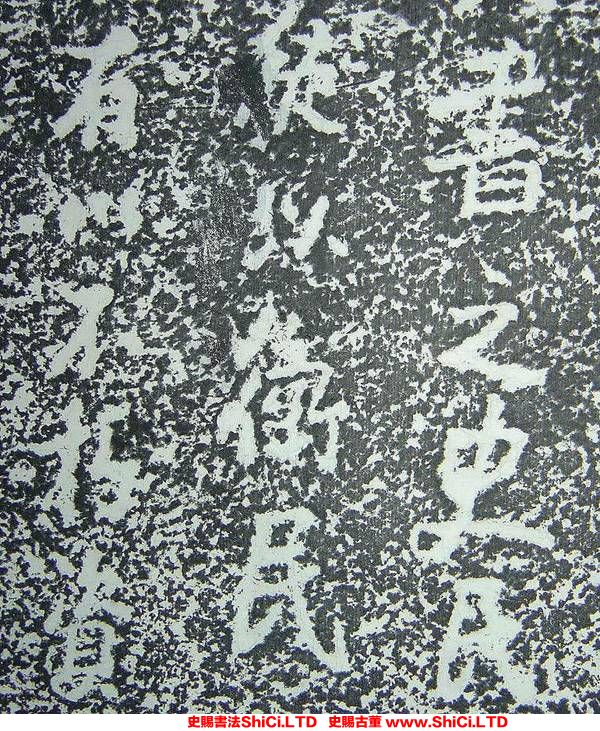 書之史民
使以衛民
有以不相
史賜書法ShiCi.LTD 史賜古董 www.ShiCi.LTD